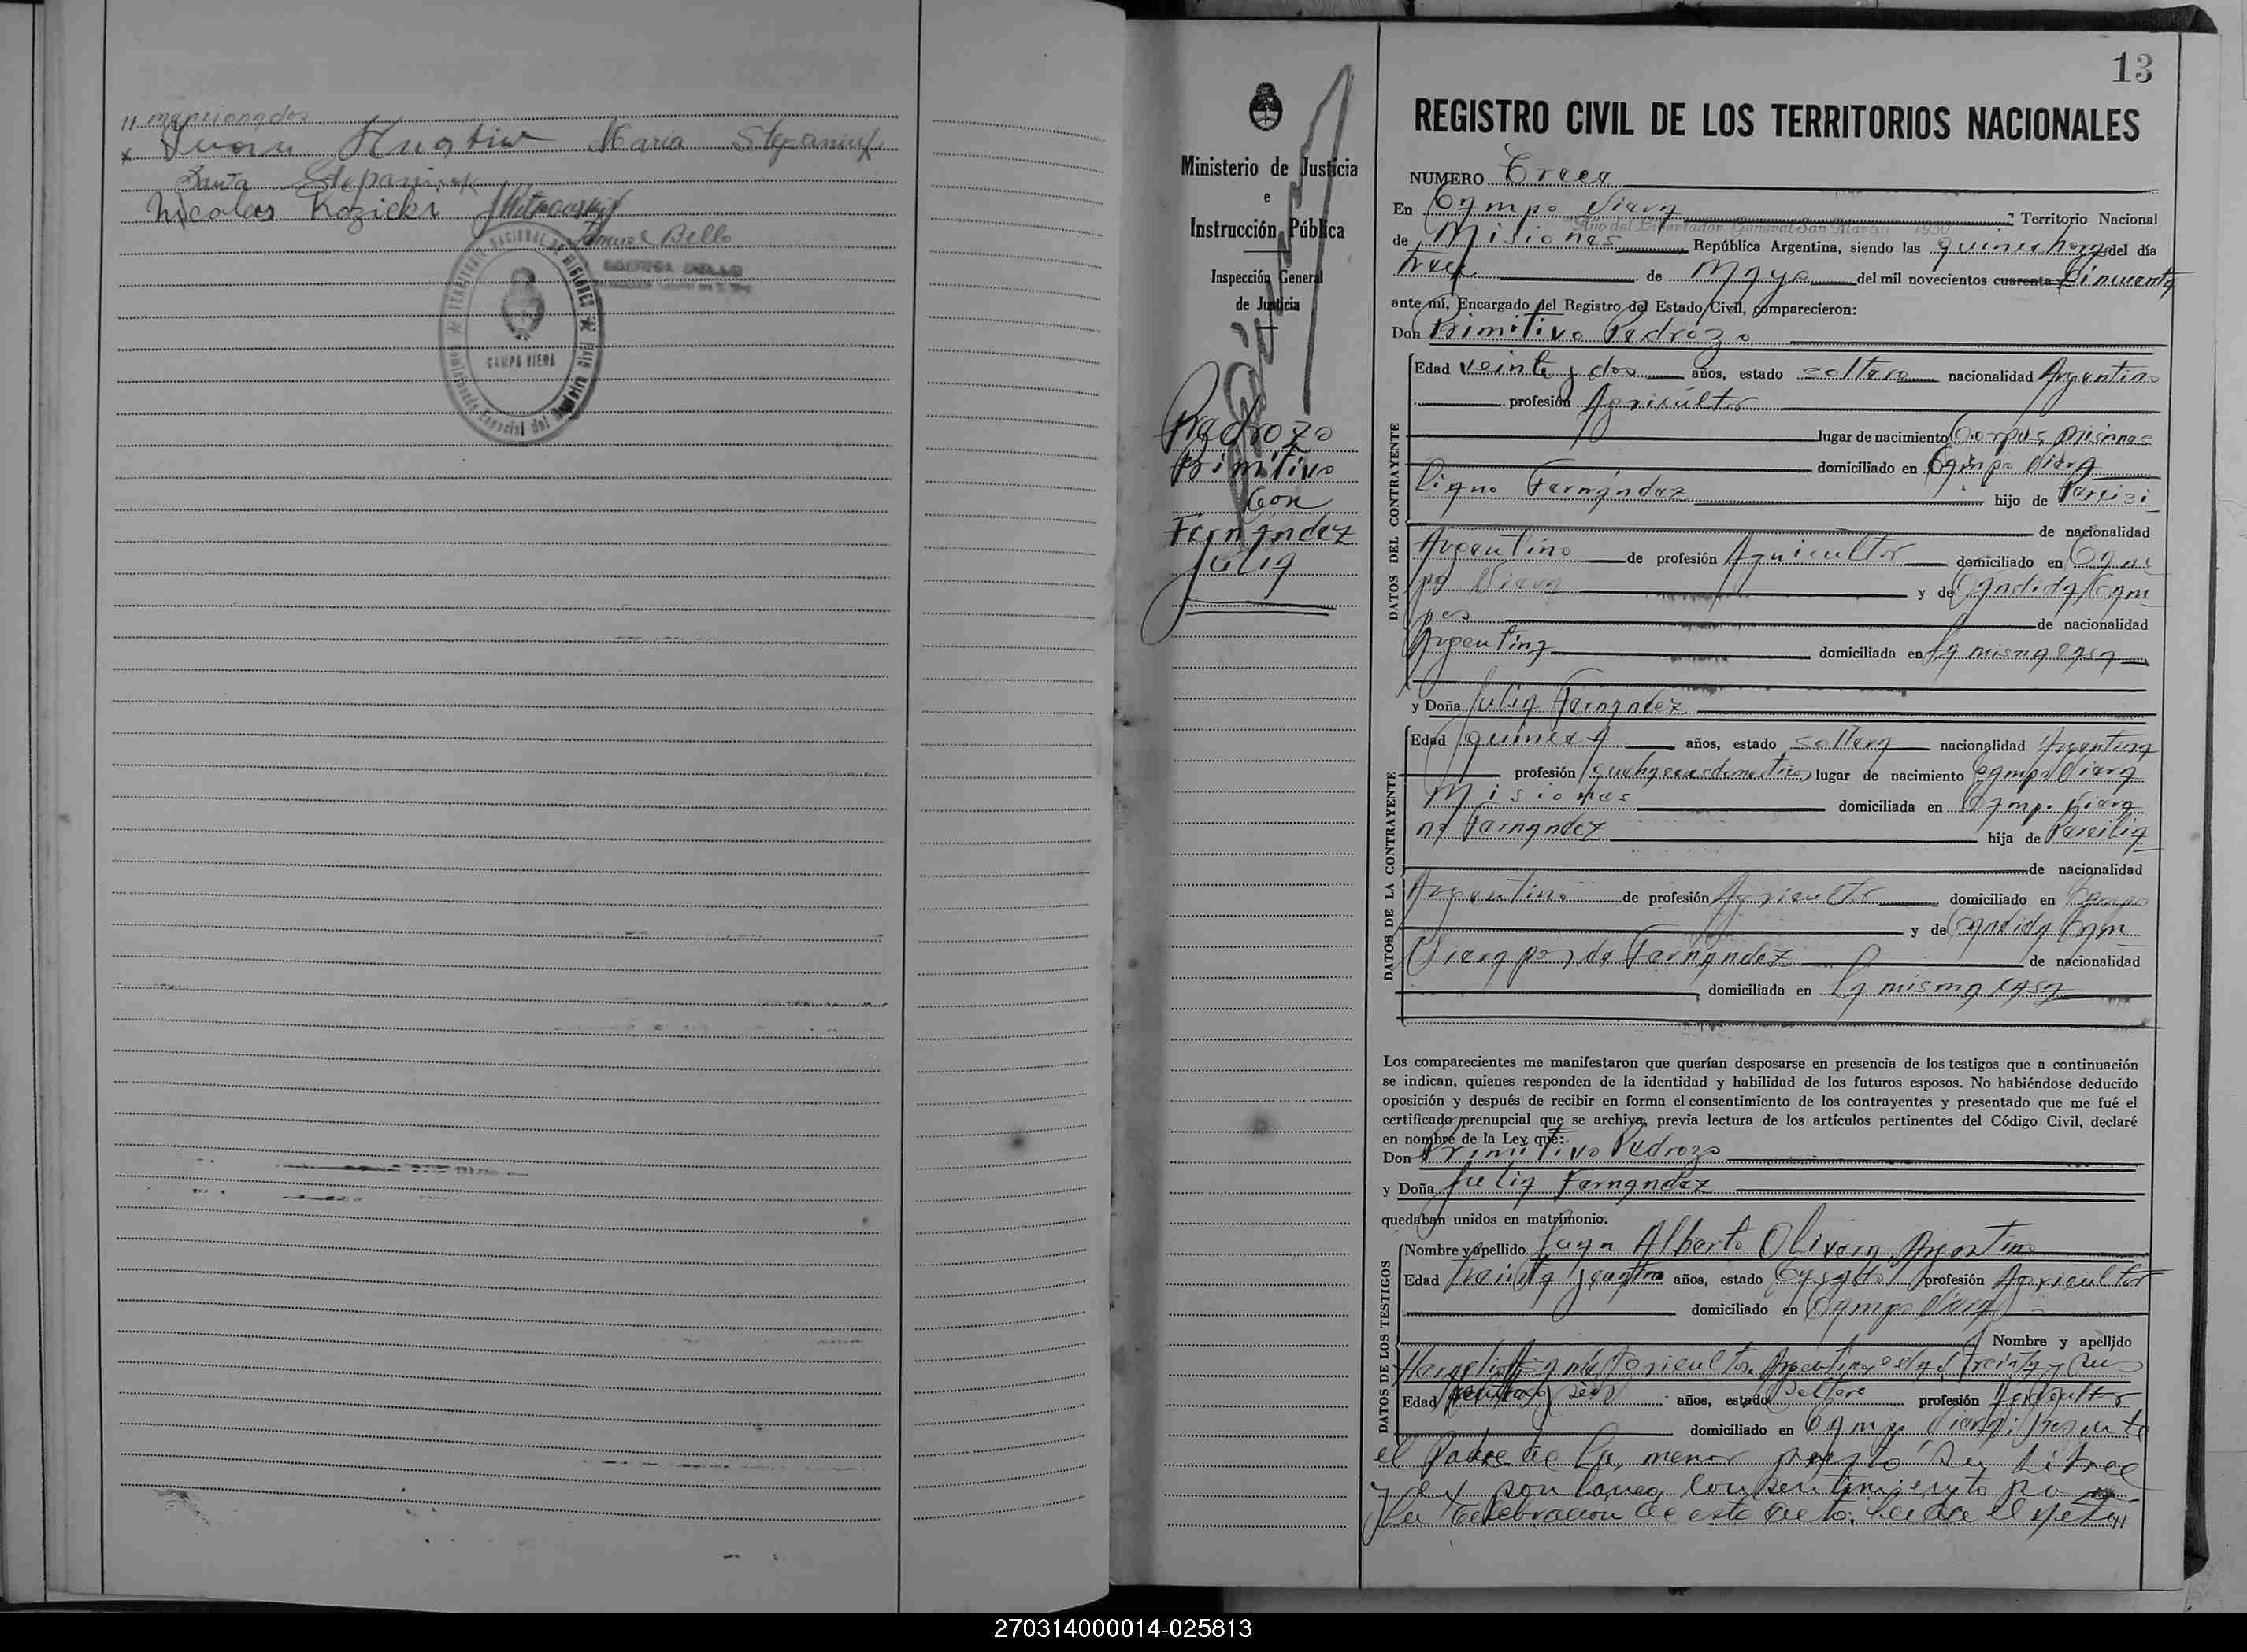 11 mencionados
x Juan Hustin Maria Stepaniuk
Santa Stepaniuk
Nicolas Kozicki
Samuel Bello
CAMPO VIERA
Ministerio de Justicia
e
Instrucción Pública
Inspección General
de Justicia
Pedrozo
Primitivo
Con
Fernandez
Julia
13
REGISTRO CIVIL DE LOS TERRITORIOS NACIONALES
NUMERO Trece
En Campo Viera Territorio Nacional
"Año del Libertador General San Martín 1950
de Misiones República Argentina, siendo las quince horas del día
trece de Mayo del mil novecientos cuarenta Cincuenta
ante mí, Encargado del Registro del Estado Civil, comparecieron:
Don Primitivo Pedrozo
DATOS DEL CONTRAYENTE
Edad veinte y dos años, estado soltero nacionalidad Argentino
profesión Agricultor
lugar de nacimiento Corpus Misiones
domiciliado en Campo Viera
Fernandez hijo de
de nacionalidad
Argentino de profesión Agricultor domiciliado en Cam
po Viera y de Candida Cam
pos de nacionalidad
Argentina domiciliada en la misma casa
y Doña Julia Fernandez
DATOS DE LA CONTRAYENTE
Edad quince años, estado soltera nacionalidad Argentina
profesión quehaceres domesticos lugar de nacimiento Campo Viera
Misiones domiciliada en Campo Viera
no Fernandez hija de
de nacionalidad
Argentino de profesión Agricultor domiciliado en Campo
y de Candida Cam
Viera pos de Fernandez de nacionalidad
domiciliada en La misma casa
Los comparecientes me manifestaron que querían desposarse en presencia de los testigos que a continuación
se indican, quienes responden de la identidad y habilidad de los futuros esposos. No habiéndose deducido
oposición y después de recibir en forma el consentimiento de los contrayentes y presentado que me fué el
certificado prenupcial que se archiva, previa lectura de los artículos pertinentes del Código Civil, declaré
en nombre de la Ley que:
Don Primitivo Pedrozo
y Doña Julia Fernandez
quedaban unidos en matrimonio.
DATOS DE LOS TESTIGOS
Nombre y apellido Juan Alberto Olivera Argentino
Edad treinta y cuatro años, estado Casado profesión Agricultor
domiciliado en Campo Viera
Nombre y apellido
Agricultor Argentino edad treinta y
Edad años, estado Soltero profesión Agricultor
domiciliado en Campo Viera presente
el Padre de la menor prestó su libre
y espontaneo consentimiento pa
la celebracion de este acto. Leida el acta
270314000014-025813